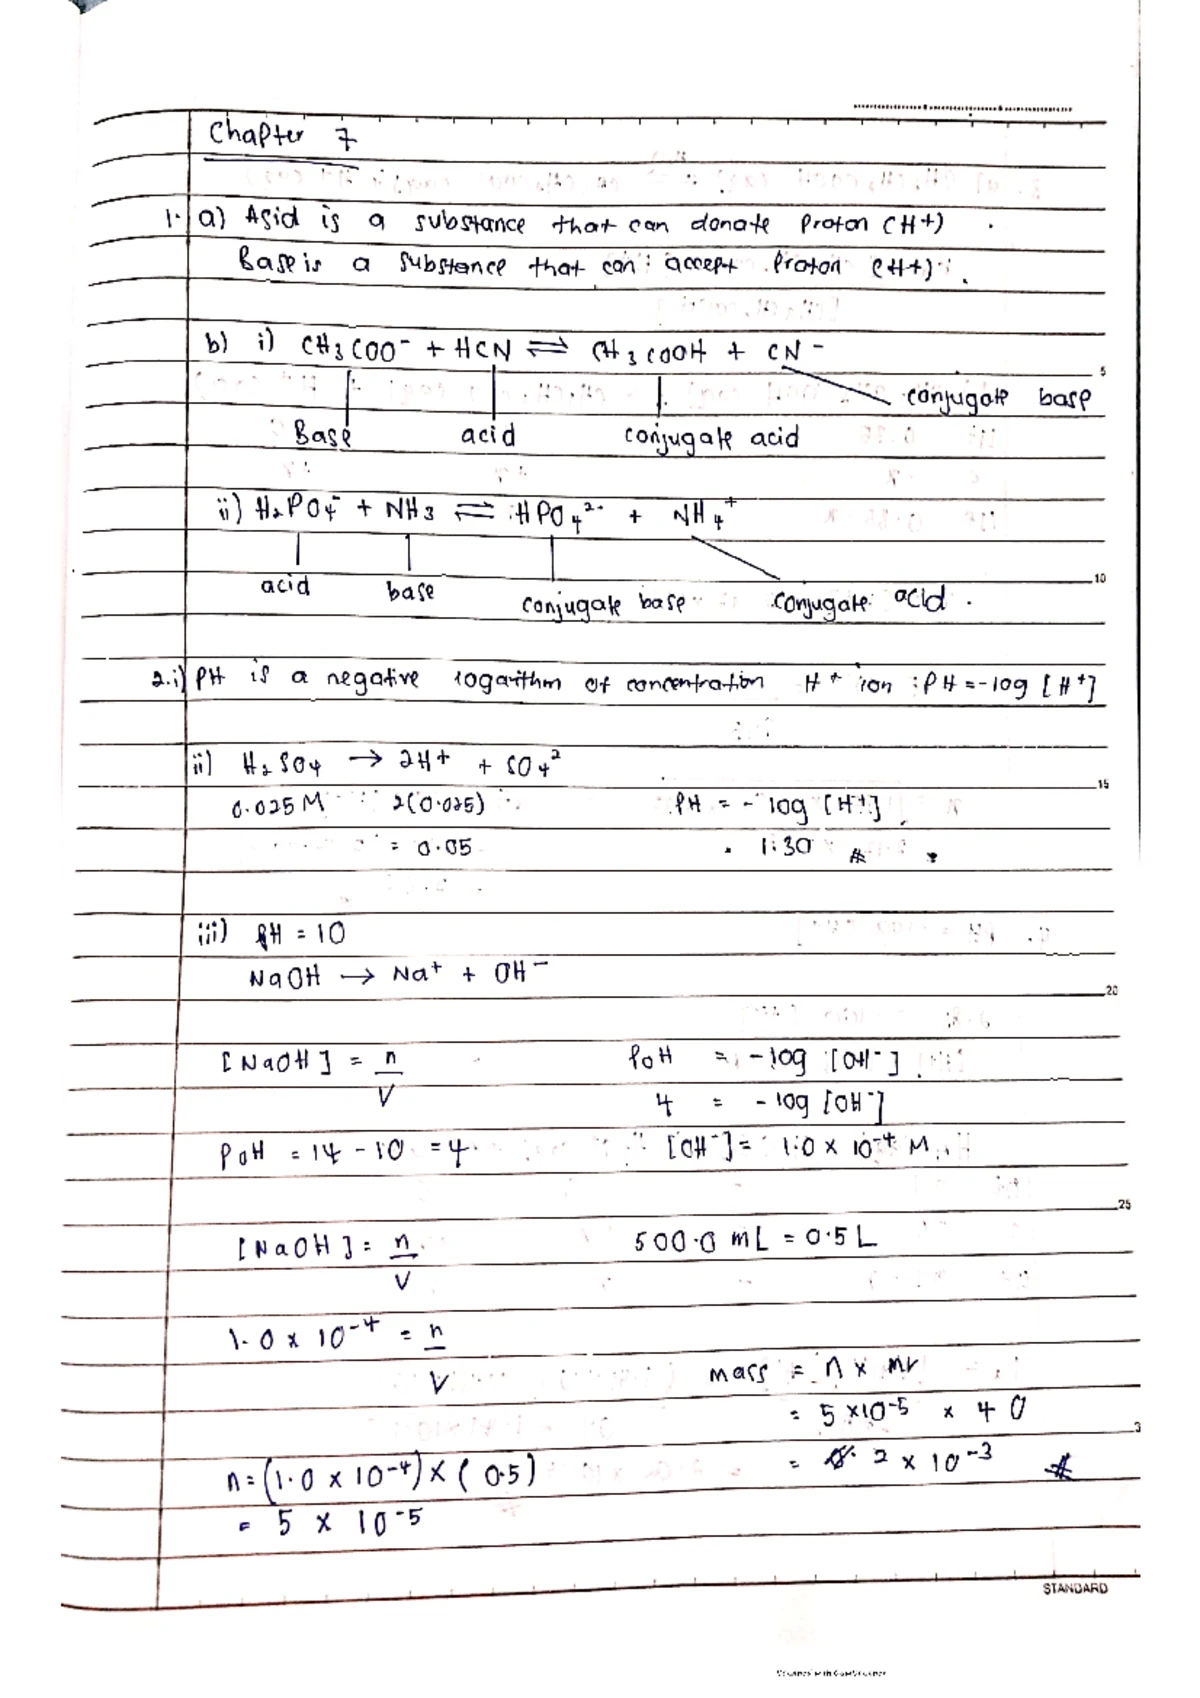 Chapter 7
1. a) Asid is a substance that can donate Proton (H+) .
Base is a substance that can accept Proton (H+) .
b) i) CH3COO⁻ + HCN ⇌ CH3COOH + CN⁻
conjugate base
5
Base acid conjugate acid
ii) H2PO4⁻ + NH3 ⇌ HPO4²⁻ + NH4⁺
10
acid base conjugate base conjugate acid .
2. i) PH is a negative logarithm of concentration H⁺ ion : PH = -log [H⁺]
ii) H2SO4 → 2H+ + SO4²
15
0.025 M 2(0.025) PH = - log [H+]
= 0.05 1.30 #
iii) PH = 10
NaOH → Na⁺ + OH⁻
20
[NaOH] = n/V POH = - log [OH⁻]
4 = - log [OH⁻]
POH = 14 - 10 = 4 [OH⁻] = 1.0 x 10⁻⁴ M
25
[NaOH] = n/V 500.0 mL = 0.5 L
1.0 x 10⁻⁴ = n/V
mass = n x mr
= 5 x10⁻⁵ x 40
3
n = (1.0 x 10⁻⁴) x (0.5) = 2 x 10⁻³ #
= 5 x 10⁻⁵
STANDARD